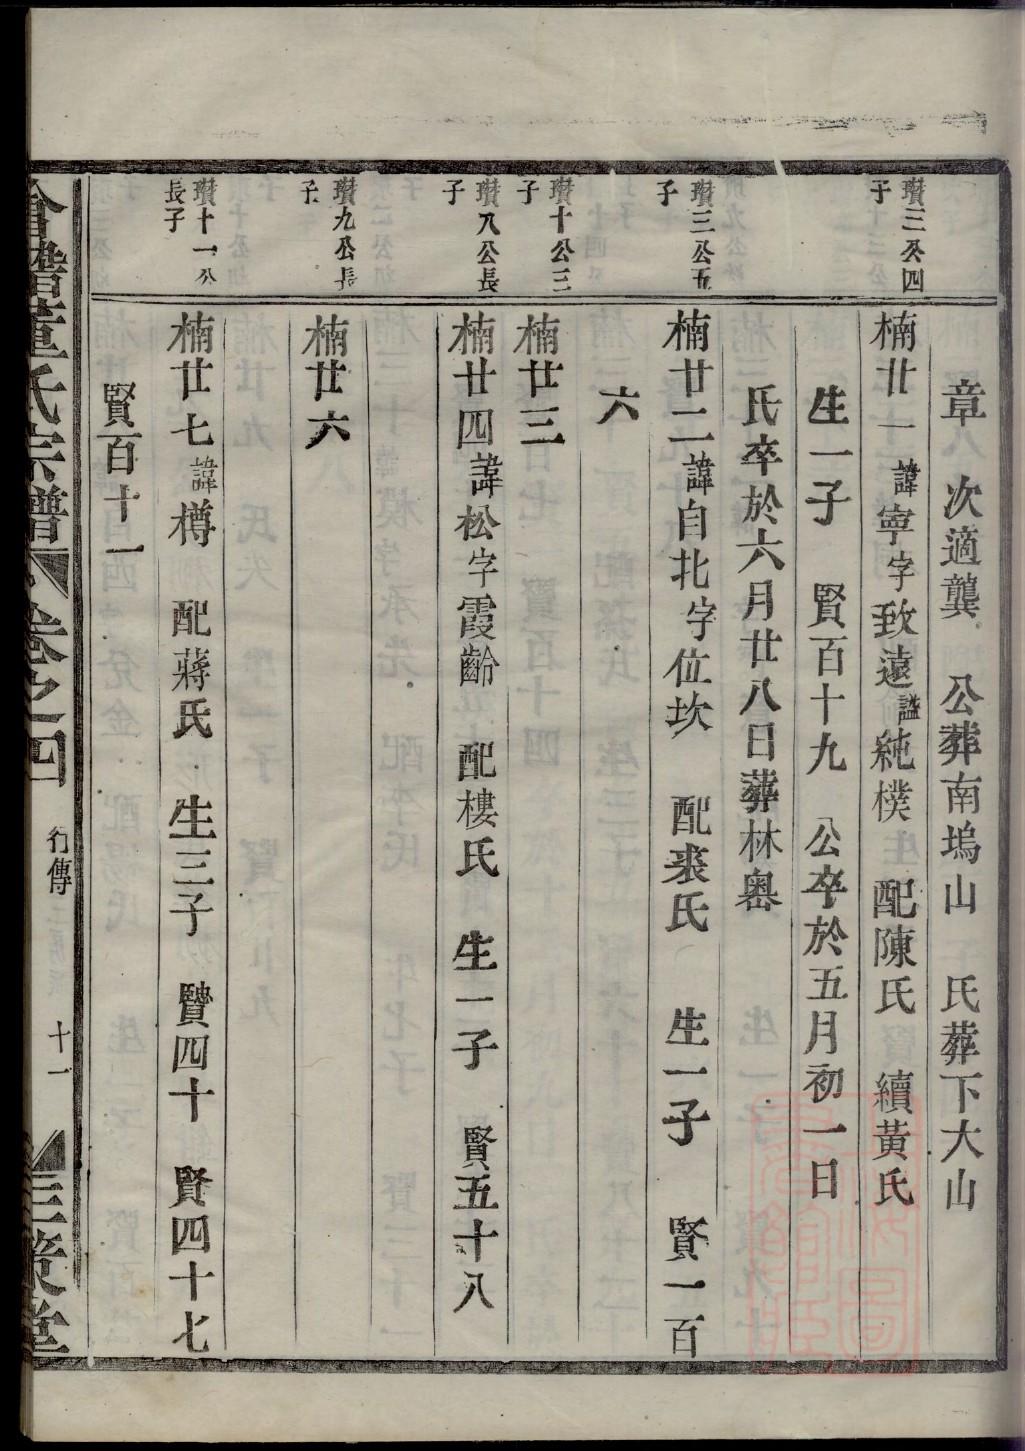 章　次適龔　公葬南塢山　氏葬下大山
瓚三公四
子
楠廿一諱寧字致遠謚純樸　配陳氏　續黃氏
生一子　賢百十九　公卒於五月初一日
氏卒於六月廿八日葬林奧
瓚三公五
子
楠廿二諱自北字位坎　配裘氏　生一子　賢一百
六
瓚十公三
子
楠廿三
瓚八公長
子
楠廿四諱松字霞齡　配樓氏　生一子　賢五十八
瓚九公長
子
楠廿六
瓚十一公
長子
楠廿七諱樽　配蔣氏　生三子　賢四十　賢四十七
賢百十一
會稽董氏宗譜　卷之四　行傳　十一　三策堂